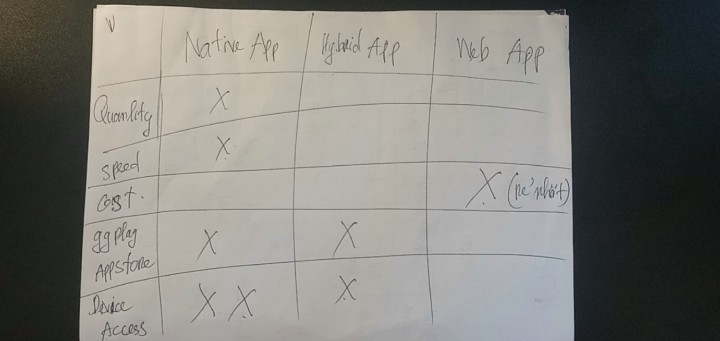 Native App Hybrid App Web App
Quanlity X
speed X
Cost. X (rẻ nhất)
gg play
Appstore X X
Device
Access X X X